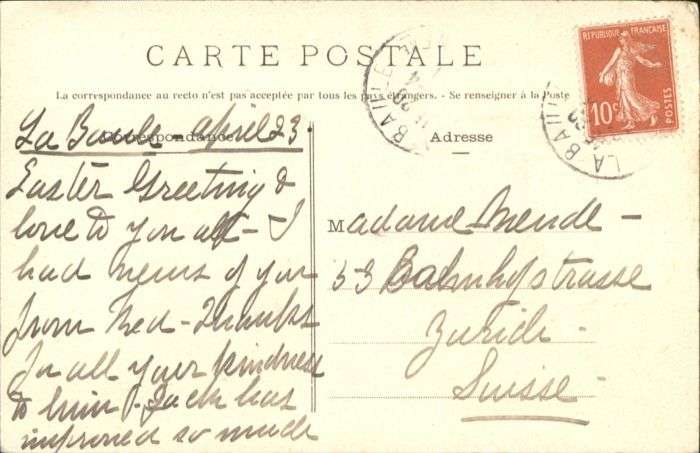 CARTE POSTALE
La correspondance au recto n'est pas acceptée par tous les pays étrangers. - Se renseigner à la Poste
Correspondance
La Baule - April 23.
Easter Greeting &
love to you all - I
had news of you
from Ned - Thanks
for all your kindness
to him &. Jack has
improved so much
Adresse
Madame Mende -
53 Bahnhofstrasse
Zurich -
Suisse -
REPUBLIQUE FRANÇAISE
10c
POSTES
LA BAULE
LA BAULE